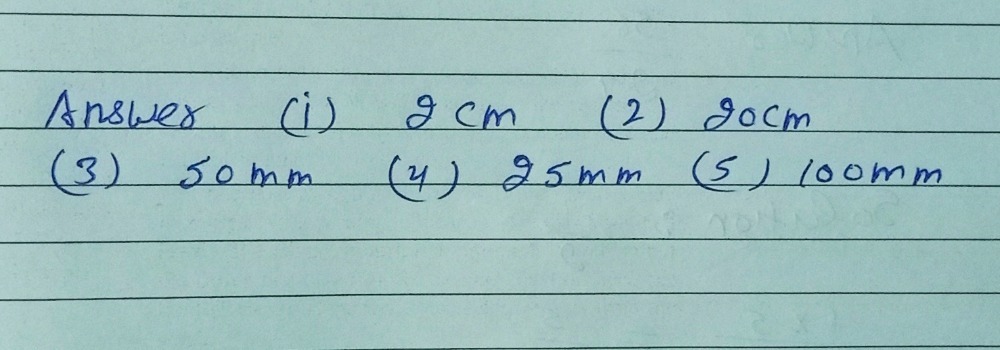 Answer (i) 2 cm (2) 20cm
(3) 50 mm (4) 25mm (5) 100mm